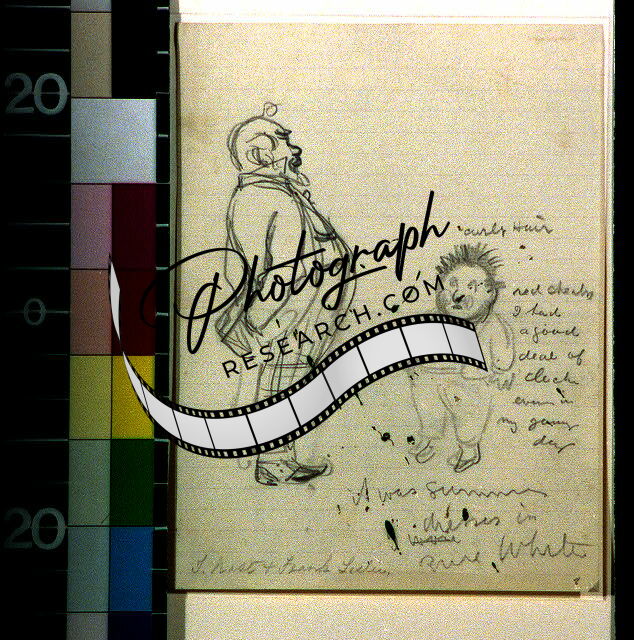 20
0
20
Photograph
RESEARCH.COM
"curly Hair
red cheeks
I had
a good
deal of
cheek
even in
my young
days
I was summer
dresses in
pure White
T. Nast &